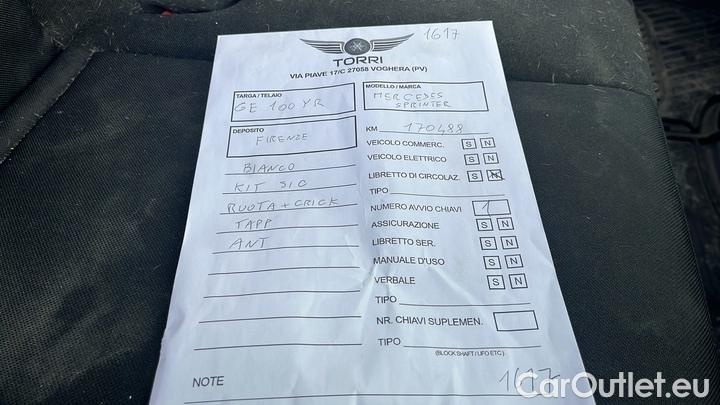 1617
TORRI
VIA PIAVE 17/C 27058 VOGHERA (PV)
TARGA / TELAIO
GE 100 YR
MODELLO / MARCA
MERCEDES
SPRINTER
DEPOSITO
FIRENZE
KM 170488
BIANCO
KIT SIC
RUOTA + CRICK
TAPP
ANT
VEICOLO COMMERC. S N
VEICOLO ELETTRICO S N
LIBRETTO DI CIRCOLAZ. S N
TIPO
NUMERO AVVIO CHIAVI 1
ASSICURAZIONE S N
LIBRETTO SER. S N
MANUALE D'USO S N
VERBALE S N
TIPO
NR. CHIAVI SUPLEMEN.
TIPO
(BLOCK SHAFT / UFO ETC)
NOTE
1617
CarOutlet.eu